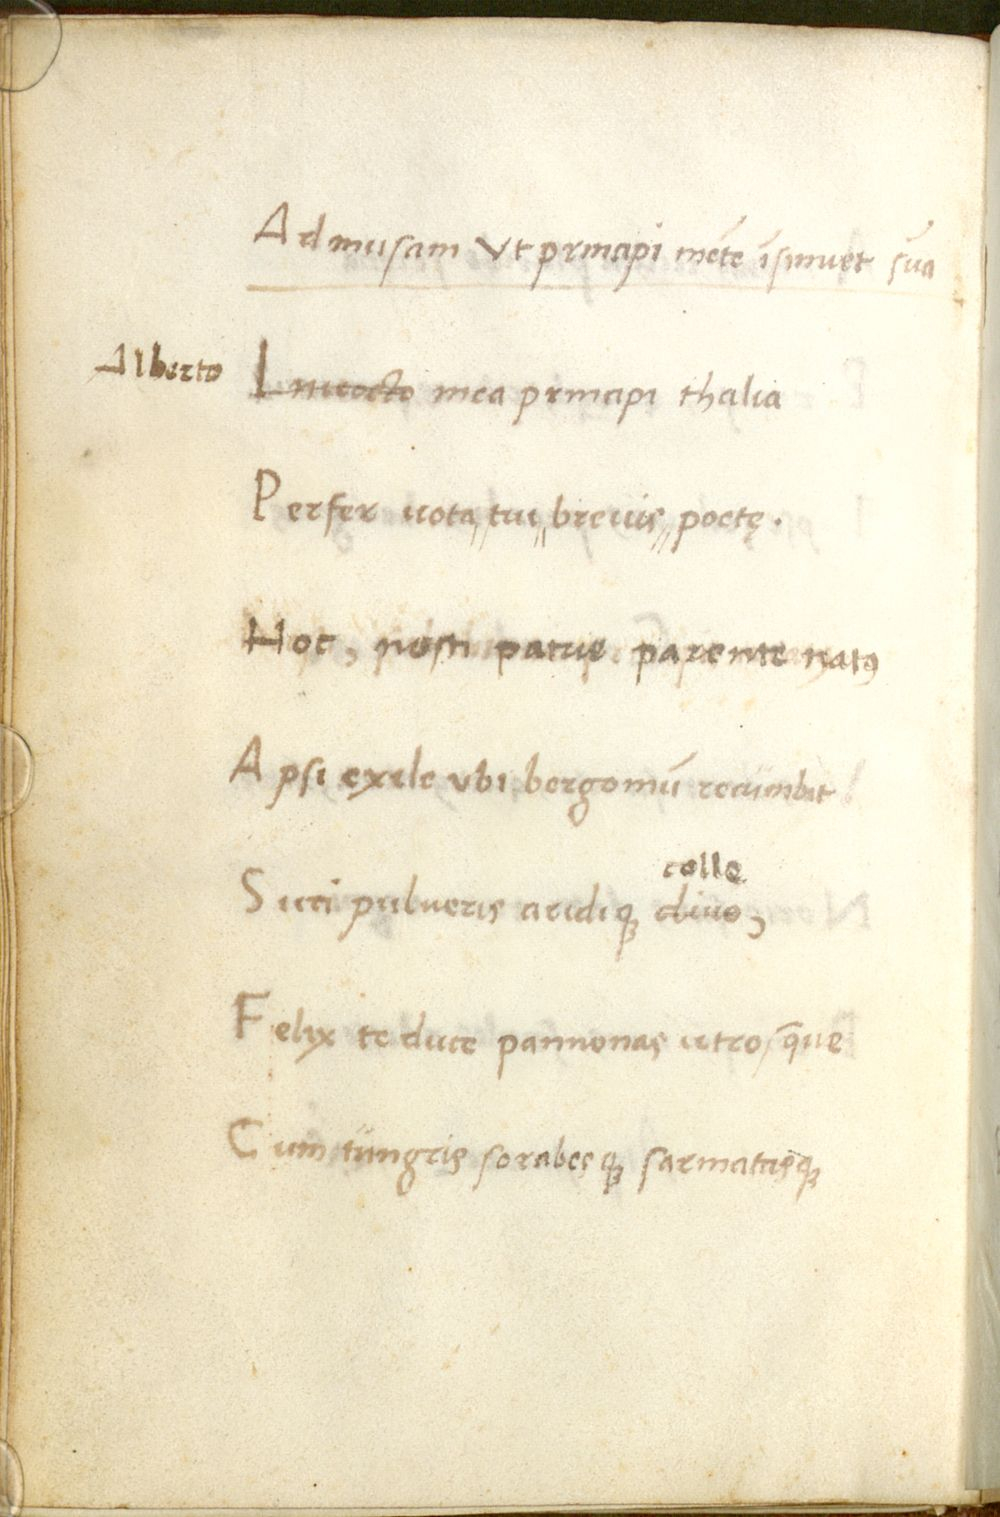 Ad musam Vt principi mẽte ĩsinuet sũa
Alberto Inuicto mea principi thalia
Perfer uota tui breuis poetę.
Hoc, nosti patrie parente natꝰ
Apsi exile vbi bergomũ recumbit
Sicci pulueris aridiqꝫ cliuo,
colle
Felix te duce pannonas utrosque
Cum tungris sorabesqꝫ sarmatasqꝫ